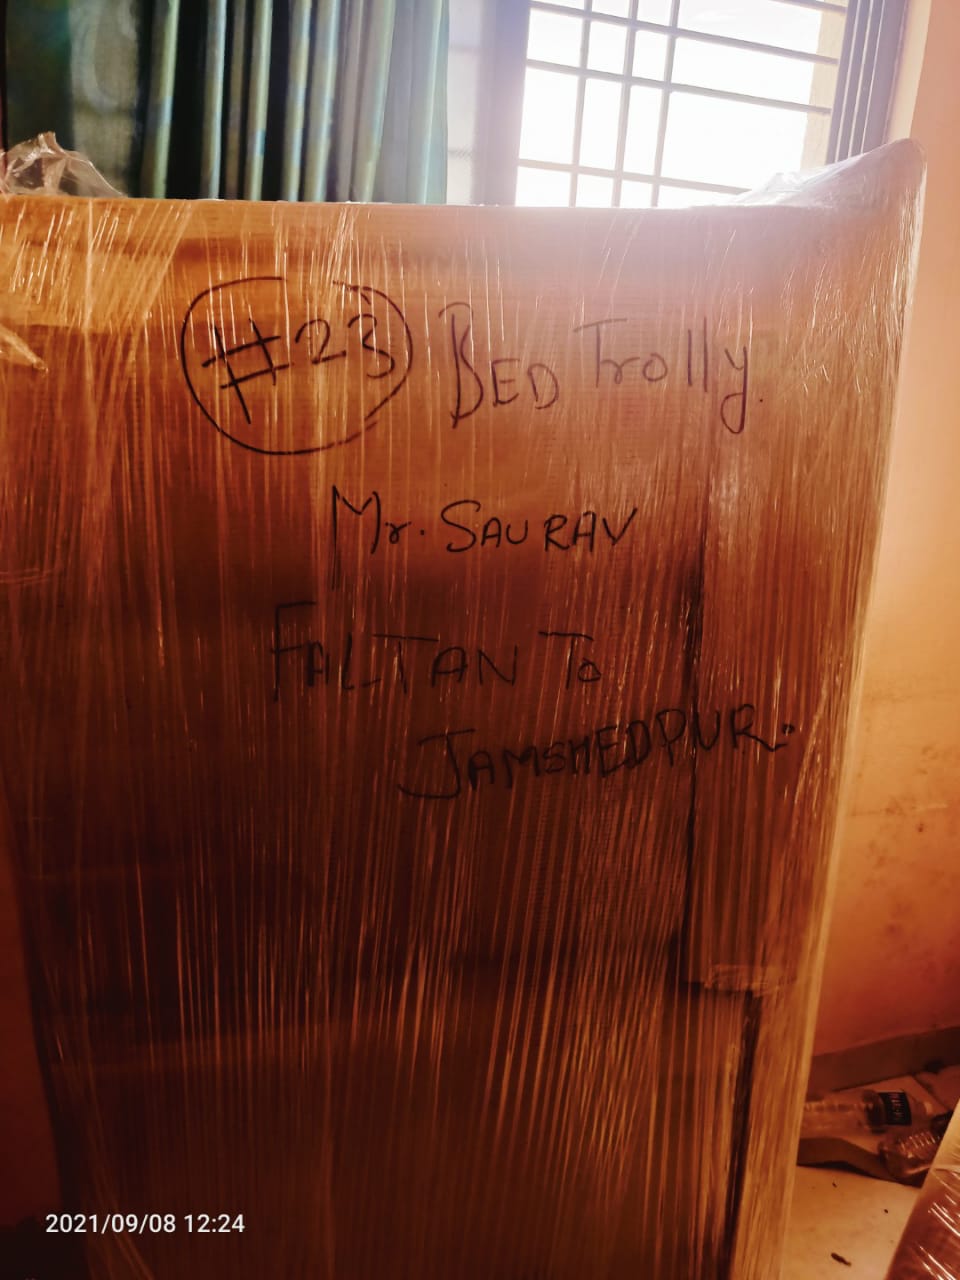 #23 BED Trolly.
Mr. SAURAV
FALTAN To
JAMSHEDPUR.
2021/09/08 12:24